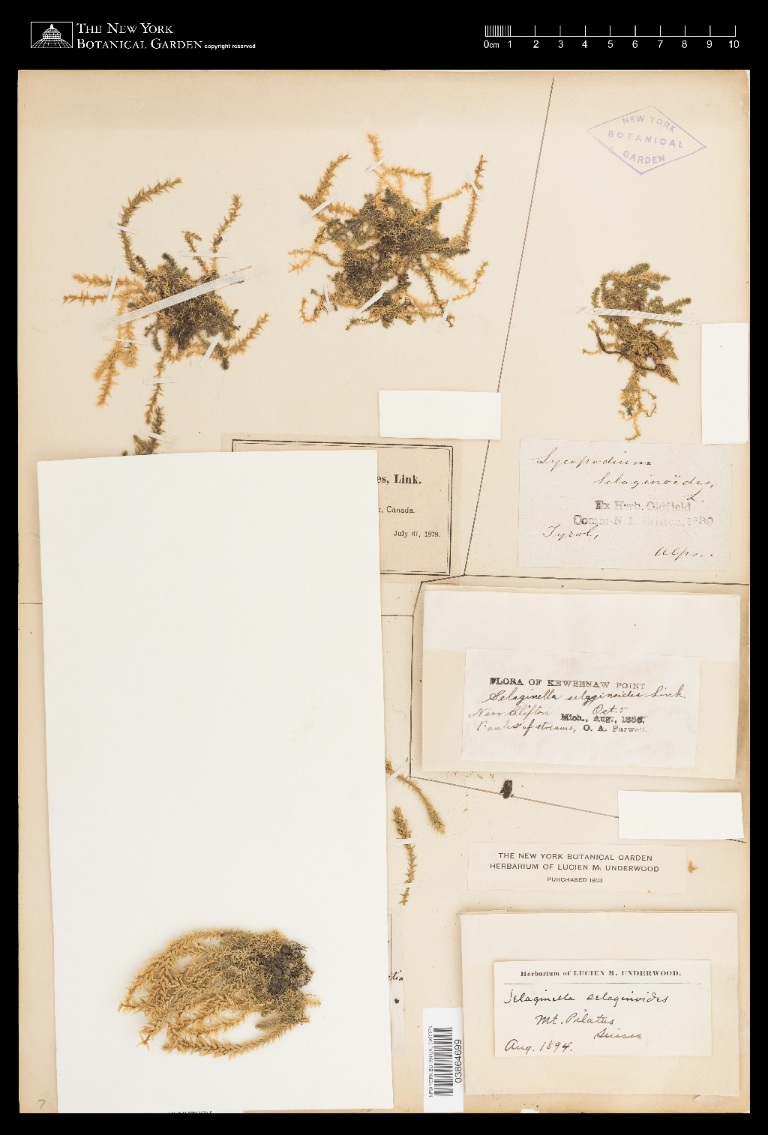 THE NEW YORK
BOTANICAL GARDEN copyright reserved
0cm 1 2 3 4 5 6 7 8 9 10
NEW YORK
BOTANICAL
GARDEN
es, Link.
, Canada.
July 31, 1878.
Lycopodium
Selaginoides,
L.
Ex Herb. Oldfield
Tyrol,
Alps.
FLORA OF KEWEENAW POINT
Selaginella selaginoides Link
Near Clifton Oct. 5
Mich., Aug., 1886.
Banks of streams, O. A. Farwell.
THE NEW YORK BOTANICAL GARDEN
HERBARIUM OF LUCIEN M. UNDERWOOD
PURCHASED
Herbarium of LUCIEN M. UNDERWOOD.
Selaginella selaginoides
Mt. Pilatus
Suisse
Aug. 1894.
NEW YORK BOTANICAL GARDEN
03864699
7